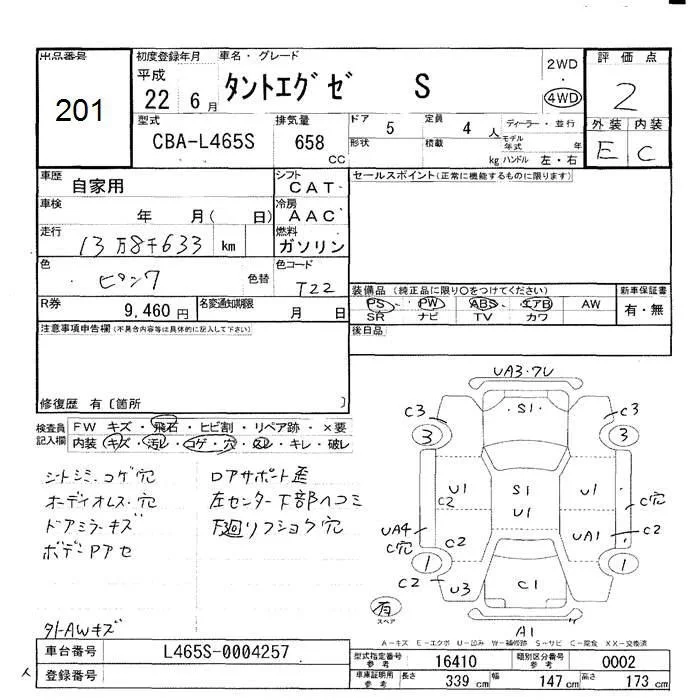 出品番号
201
初度登録年月
平成
22 6月
車名・グレード
タントエグゼ S
2WD
4WD
評価点
2
外装 内装
E C
型式
CBA-L465S
排気量
658
CC
ドア 5
定員 4 人
ディーラー・並行
形状
積載
kg
モデル年式 年
ハンドル 左・右
車歴
自家用
シフト
CAT
セールスポイント(正常に機能するものに限ります)
車検
年 月( 日)
冷房
AAC
走行
13万8千633 km
燃料
ガソリン
色
ピンク
色替
色コード
T22
R券
9,460 円
名変通知期限
月 日
装備品(純正品に限り○をつけてください)
新車保証書
PS PW ABS エアB AW
有・無
SR ナビ TV カワ
注意事項申告欄(不具合内容等は具体的に記入して下さい)
後日品
修復歴 有〔箇所 〕
検査員記入欄
FW キズ・飛石・ヒビ割・リペア跡・×要
内装 キズ・汚レ・コゲ・穴・スレ・キレ・破レ
シートシミ、コゲ穴
オーディオレス・穴
ドアミラーキズ
ボデーPアセ
外AWキズ
ロアサポート歪
左センター下部ヘコミ
下廻リフショク穴
UA3・ワレ
S1
C3 C3
3 3
U1 S1 U1
C2 U1 C穴
UA4 UA1 C2
C穴 C2
1 1
C2 U3 C1
有
スペア
A1
A-キズ E-エクボ U-凹み W-補修跡 S-サビ C-腐食 XX-交換済
車台番号
L465S-0004257
型式指定番号
参考
16410
類別区分番号
参考
0002
登録番号
車庫証明用
参考
長さ 339 cm
幅 147 cm
高さ 173 cm